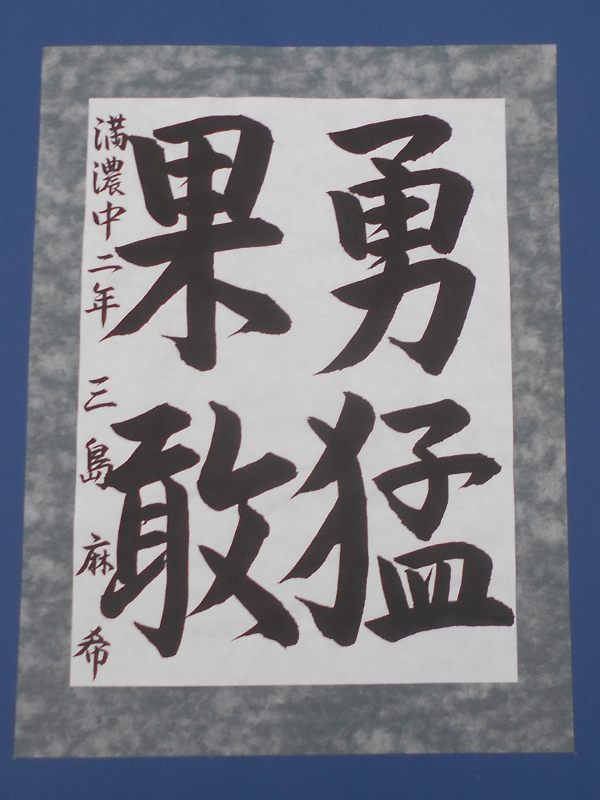 勇猛
果敢
満濃中二年 三島麻希